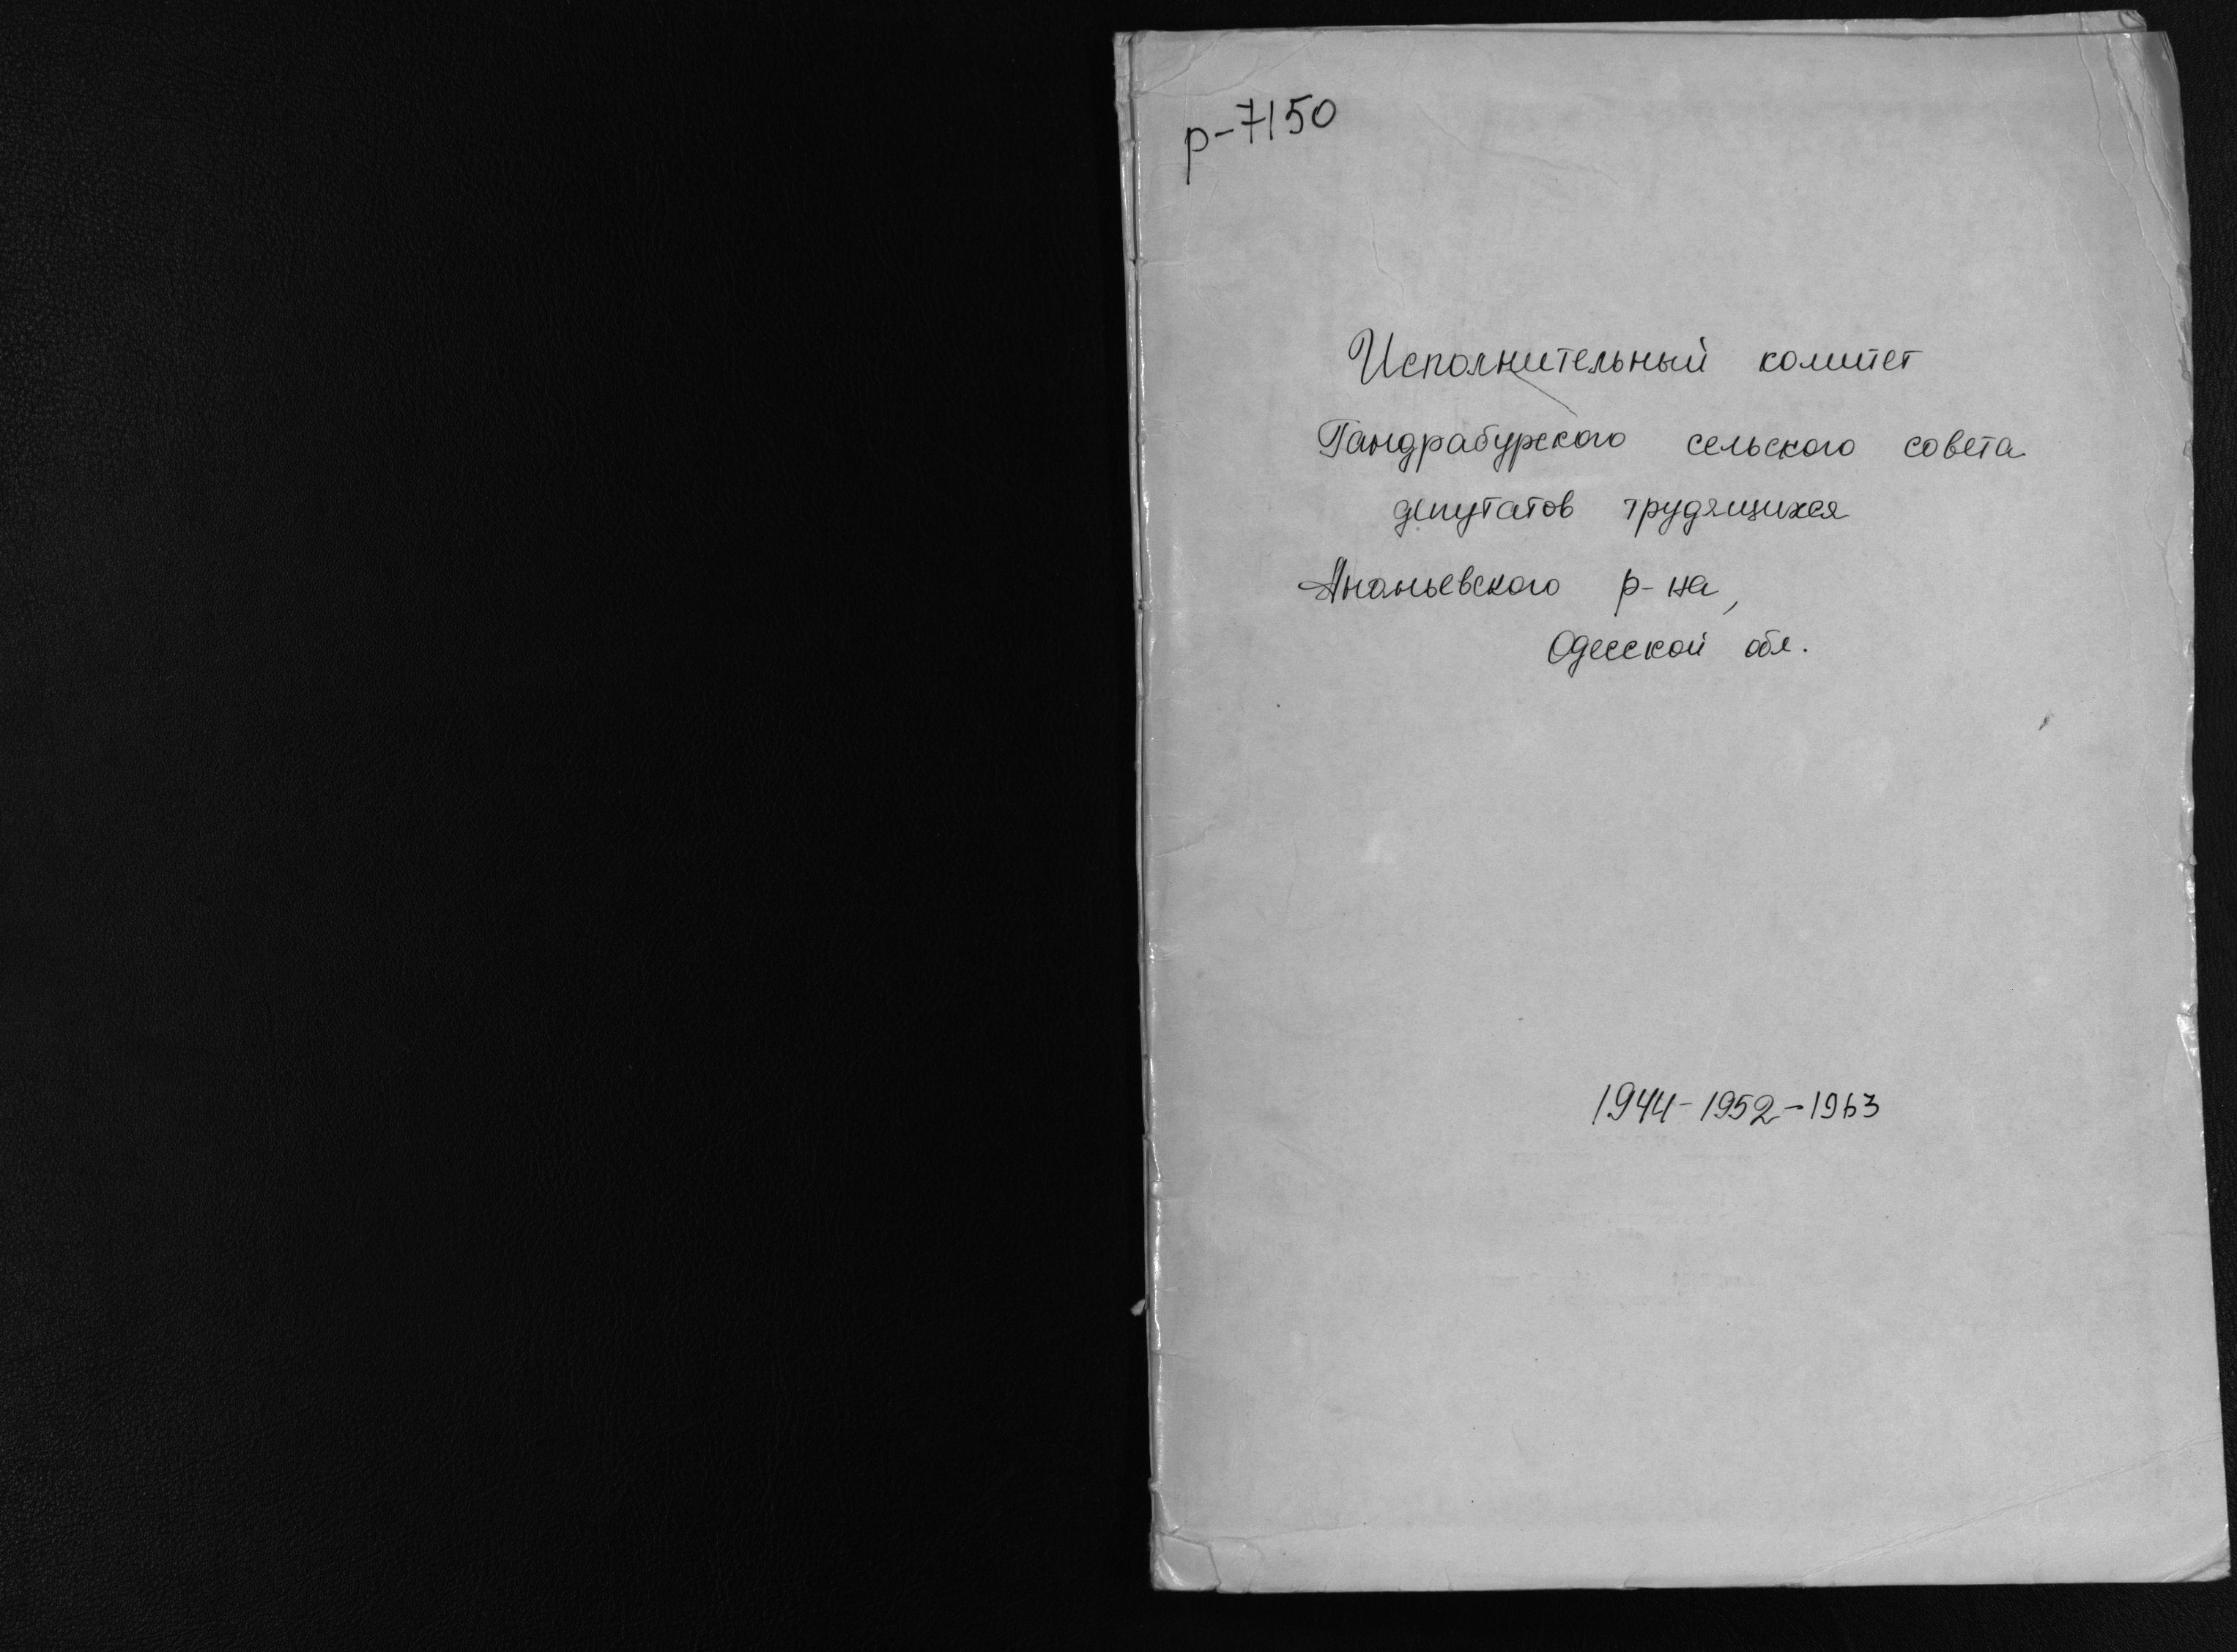 р-7150
Исполнительный комитет
Гандрабурского сельского совета
депутатов трудящихся
Ананьевского р-на,
Одесской обл.
1944-1952-1963